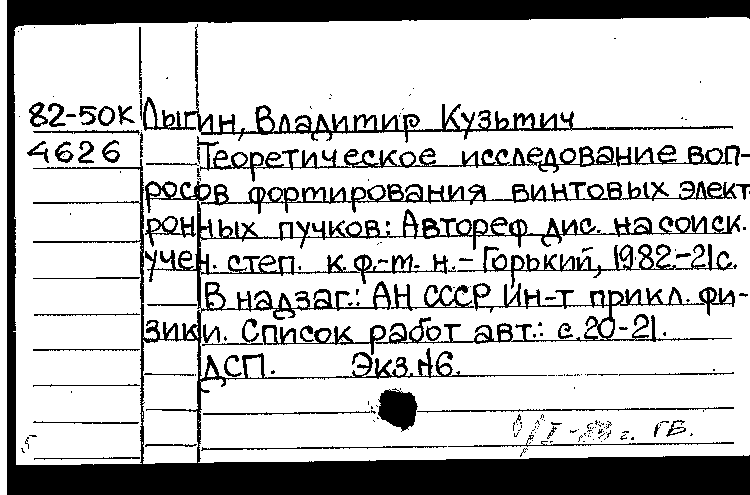 82-50К Лыгин, Владимир Кузьмич
4626 Теоретическое исследование воп-
росов формирования винтовых элект-
ронных пучков: Автореф. дис. на соиск.
учен. степ. к.ф.-м. н. - Горький, 1982.-21с.
В надзаг.: АН СССР, Ин-т прикл. фи-
зики. Список работ авт.: с.20-21.
ДСП. Экз.№6.
I-83 г. ГБ.
5